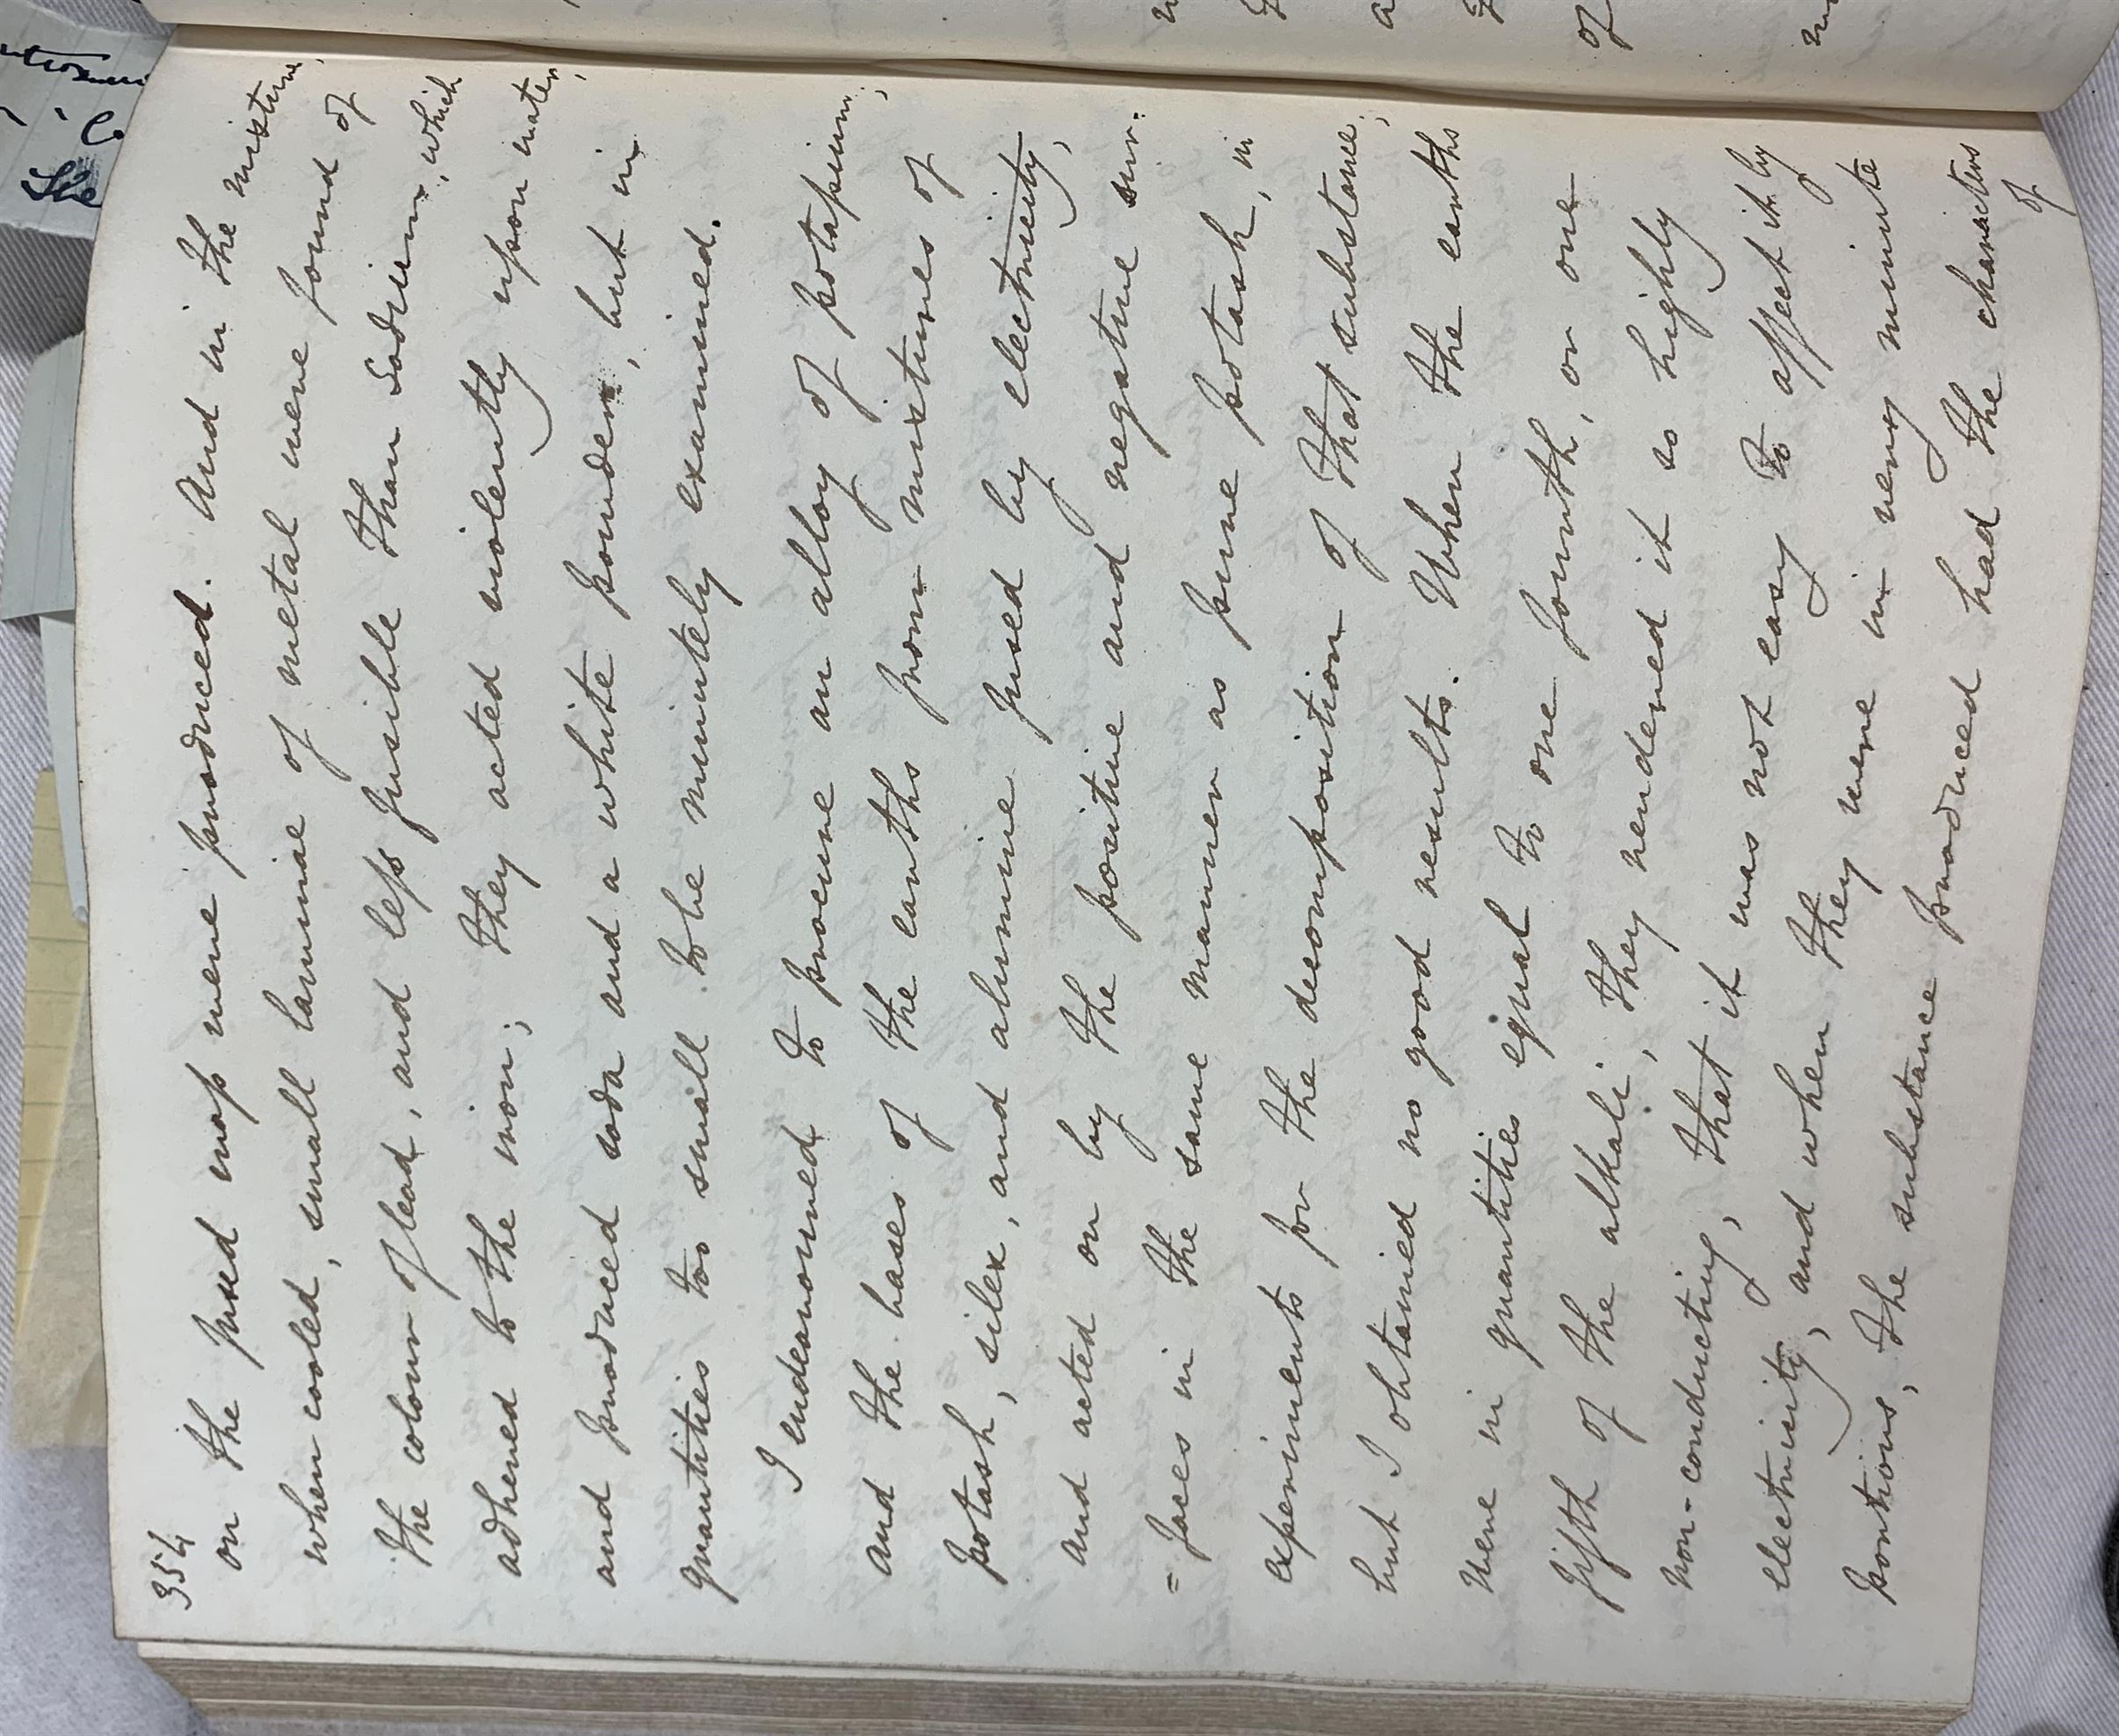 354
on the fused mass were produced. And in the mixture,
when cooled, small laminae of metal were found of
the colour of lead, and less fusible than sodium, which
adhered to the iron; they acted violently upon water,
and produced soda and a white powder, but in
quantities too small to be minutely examined.
I endeavoured to procure an alloy of potassium;
and the bases of the earths from mixtures of
potash, silex, and alumine fused by electricity,
and acted on by the positive and negative sur:
=faces in the same manner as pure potash, in
experiments for the decomposition of that substance;
but I obtained no good results. When the earths
were in quantities equal to one fourth, or one
fifth of the alkali, they rendered it so highly
non-conducting, that it was not easy to affect it by
electricity, and when they were in very minute
portions, the substance produced had the characters
of